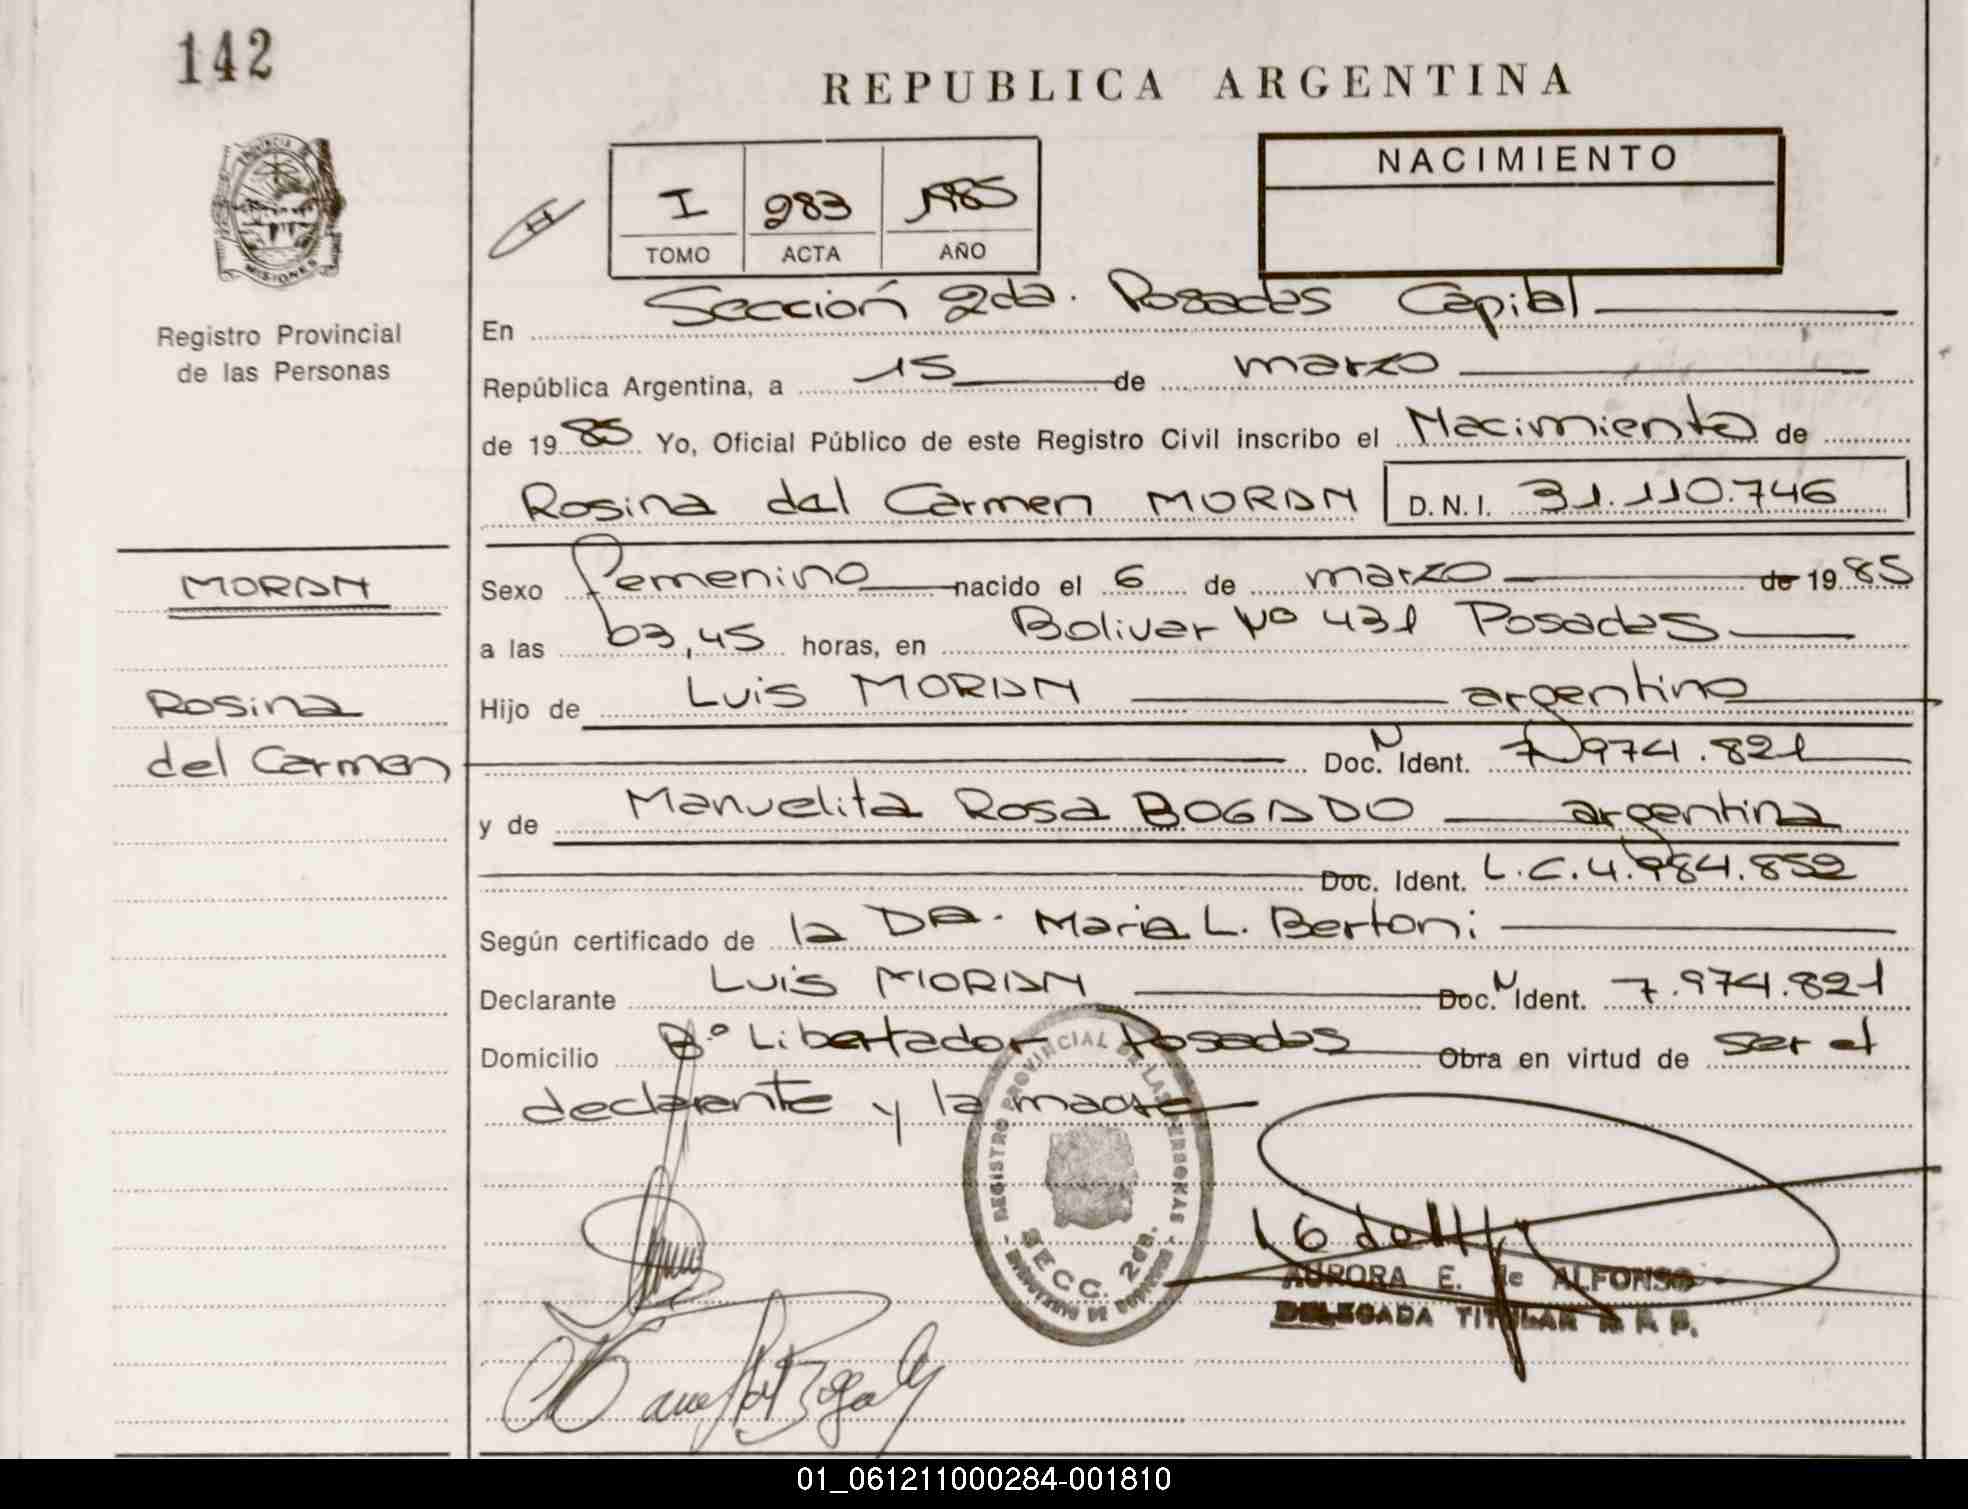 142
REPUBLICA ARGENTINA
NACIMIENTO
I 283 1985
TOMO ACTA AÑO
PROVINCIA DE
MISIONES
Registro Provincial
de las Personas
En Sección 2da. Posadas Capital
República Argentina, a 15 de marzo
de 1985 Yo, Oficial Público de este Registro Civil inscribo el Nacimiento de
Rosina del Carmen MORAN D.N.I. 31.110.746
MORAN
Rosina
del Carmen
Sexo femenino nacido el 6 de marzo de 1985
a las 03,45 horas, en Bolivar Nº 431 Posadas
Hijo de Luis MORAN argentino
Doc. N Ident. 7.974.821
y de Manuelita Rosa BOGADO argentina
Doc. Ident. L.C.4.984.852
Según certificado de la DRA. Maria L. Bertoni
Declarante Luis MORAN Doc. N Ident. 7.974.821
Domicilio Bº Libertador Posadas Obra en virtud de ser el
declarante y la madre
REGISTRO PROVINCIAL DE LAS PERSONAS
SECC. 2da.
AURORA E. de ALFONSO
DELEGADA TITULAR R.P.P.
01_061211000284-001810